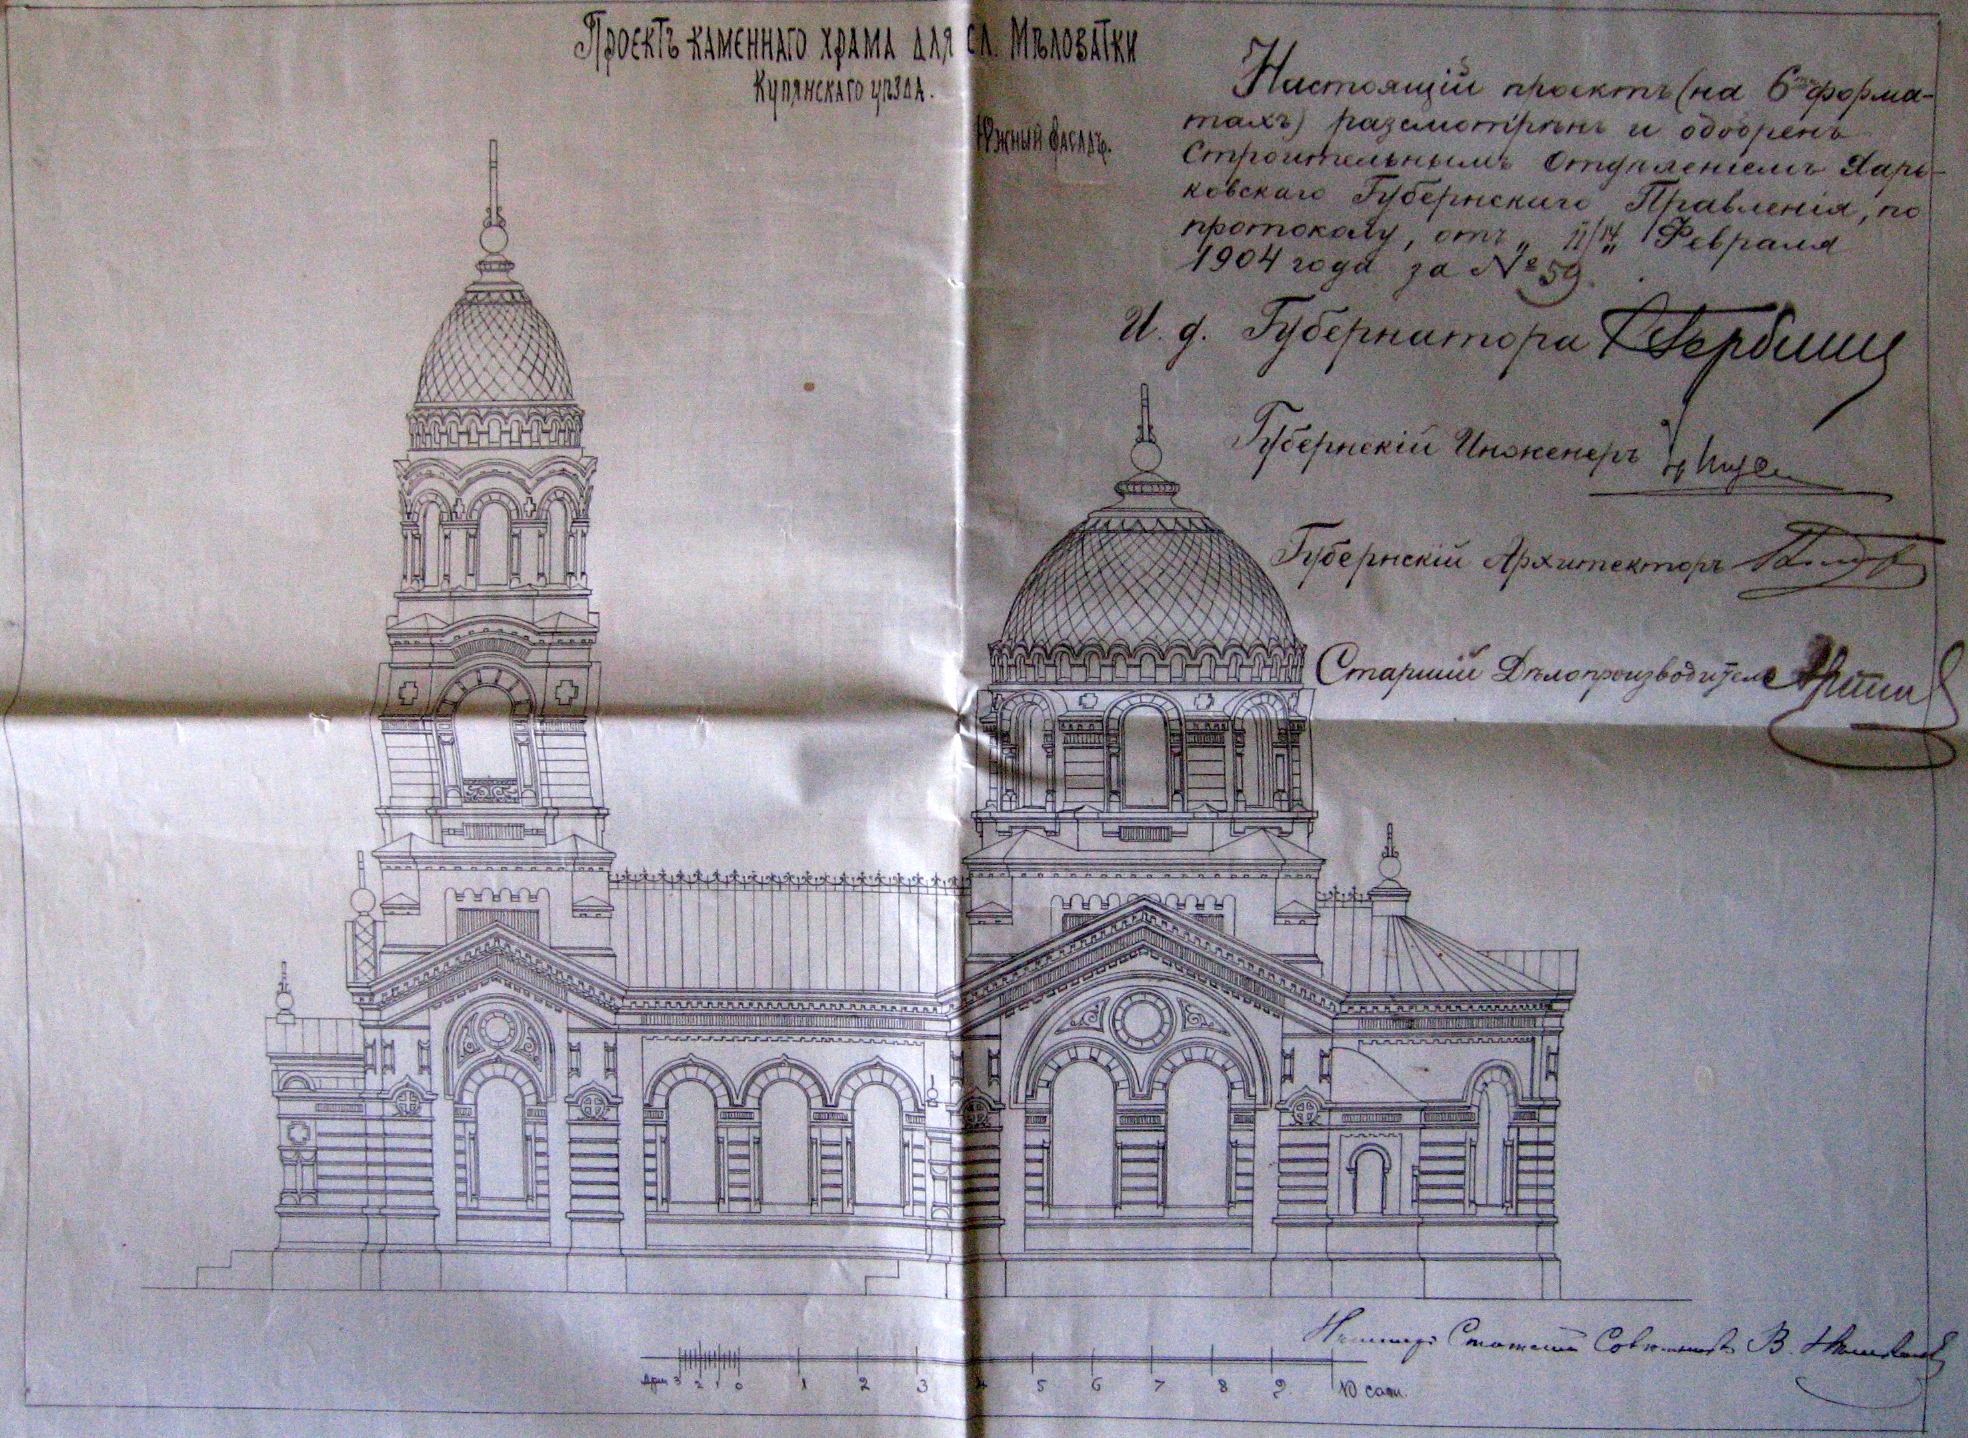 Проектъ каменнаго храма для сл. Мѣловатки
Купянскаго уѣзда.
Южный фасадъ.
Настоящій проектъ (на 6 форма-
тахъ) разсмотрѣнъ и одобренъ
Строительнымъ Отдѣленіемъ Харь-
ковскаго Губернскаго Правленія, по
протоколу, отъ „ 11/14 „ Февраля
1904 года за № 59.
И. д. Губернатора
Губернскій Инженеръ
Губернскій Архитекторъ
Старшій Дѣлопроизводитель
Статскій Совѣтникъ В.
Арш 3 2 1 0 1 2 3 4 5 6 7 8 9 10 саж.